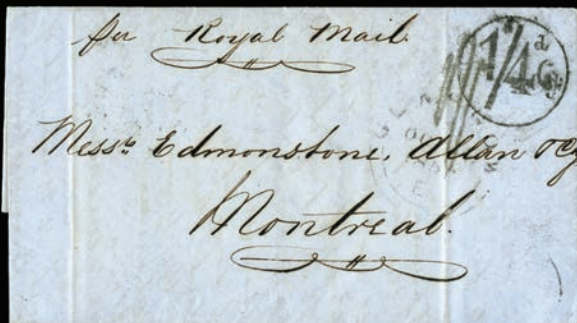 per Royal Mail
1/4d
Messrs Edmonstone, Allan & Co
Montreal.